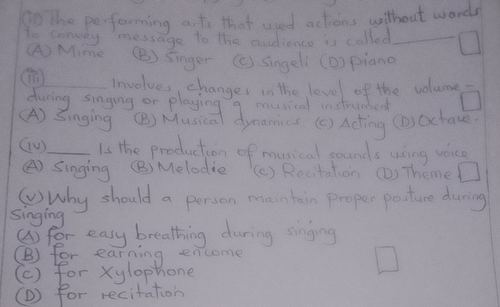 (ii) The performing arts that used actions without words
to convey message to the audience is called
(A) Mime (B) Singer (C) Singeli (D) piano
(iii) Involves changes in the level of the volume
during singing or playing a musical instrument
(A) Singing (B) Musical dynamics (C) Acting (D) Octave.
(iv) Is the production of musical sounds using voice
(A) Singing (B) Melodie (C) Recitation (D) Theme
(v) Why should a person maintain proper posture during
singing
(A) for easy breathing during singing
(B) for earning encome
(C) for Xylophone
(D) for recitation